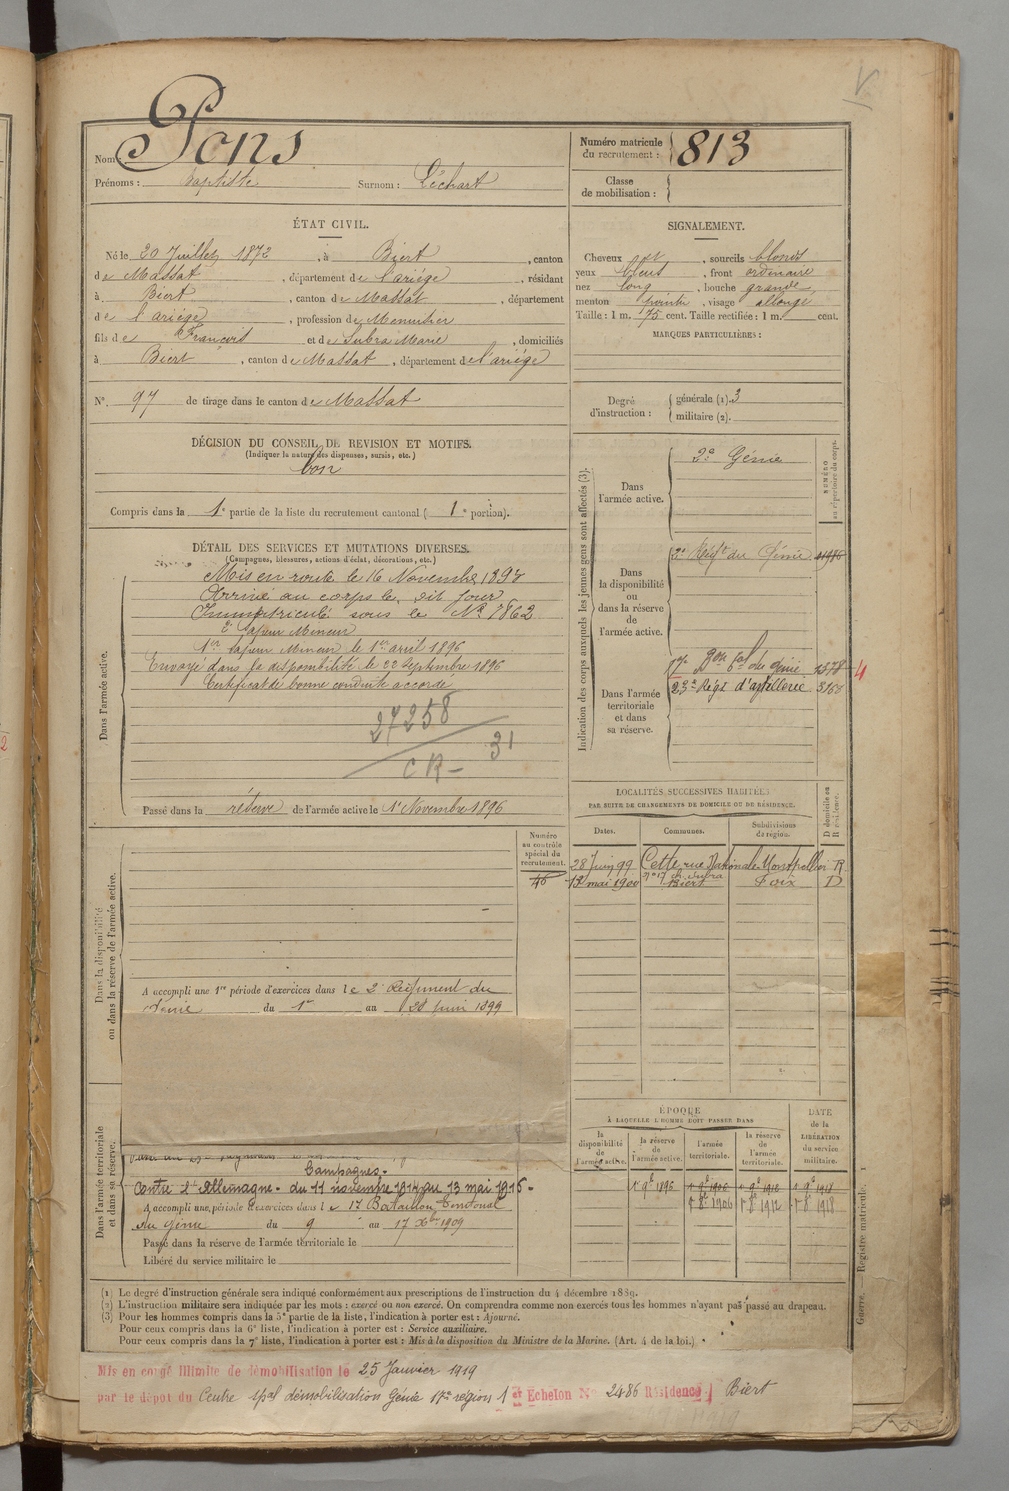 Nom : Pons
Prénoms : Baptiste Surnom : Léchart
Numéro matricule du recrutement : 813
Classe de mobilisation :
ÉTAT CIVIL.
Né le 20 Juillet 1872, à Biert, canton
de Massat, département de l'ariége, résidant
à Biert, canton de Massat, département
de l'ariége, profession de Menuisier
fils de François et de Subra Marie, domiciliés
à Biert, canton de Massat, département de l'ariége
N°. 97 de tirage dans le canton de Massat
SIGNALEMENT.
Cheveux et, sourcils blonds
yeux bleus, front ordinaire
nez long, bouche grande
menton pointu, visage allongé
Taille : 1 m. 75 cent. Taille rectifiée : 1 m. cent.
MARQUES PARTICULIÈRES :
Degré d'instruction : générale (1). 3
militaire (2).
DÉCISION DU CONSEIL DE REVISION ET MOTIFS.
(Indiquer la nature des dispenses, sursis, etc.)
bon
Compris dans la 1e partie de la liste du recrutement cantonal ( 1e portion).
DÉTAIL DES SERVICES ET MUTATIONS DIVERSES.
(Campagnes, blessures, actions d'éclat, décorations, etc.)
Dans l'armée active.
Mis en route le 16 Novembre 1893
Arrivé au corps le dit jour
Immatriculé sous le N° 7862
2e Sapeur Mineur
1er Sapeur Mineur le 1er avril 1896
Envoyé dans la disponibilité le 22 Septembre 1896
Certificat de bonne conduite accordé
27258
CR- 31
Passé dans la réserve de l'armée active le 1er Novembre 1896
Indication des corps auxquels les jeunes gens sont affectés (3).
NUMÉRO au répertoire du corps.
Dans l'armée active.
2e Génie
Dans la disponibilité ou dans la réserve de l'armée active.
2e Régt du Génie
Dans l'armée territoriale et dans sa réserve.
17e Bon tal du Génie 1378 4
23e Régt d'artillerie
LOCALITÉS SUCCESSIVES HABITÉES
PAR SUITE DE CHANGEMENTS DE DOMICILE OU DE RÉSIDENCE.
Dates. Communes. Subdivisions de région. D domicile ou R résidence.
28 Juin 99 Cette, rue Nationale Montpellier R
n° 17 ch. Subra
13 mai 1900 Biert Foix D
Numéro au contrôle spécial du recrutement.
Dans la disponibilité ou dans la réserve de l'armée active.
A accompli une 1re période d'exercices dans le 2e Régiment du
Génie du 1er au 28 Juin 1899
Dans l'armée territoriale et dans sa réserve.
Campagnes.
Contre l'Allemagne - du 11 novembre 1914 au 13 mai 1916 -
A accompli une période d'exercices dans le 17e Bataillon territorial
du Génie du 9 au 17 Xbre 1909
Passé dans la réserve de l'armée territoriale le
Libéré du service militaire le
ÉPOQUE
À LAQUELLE L'HOMME DOIT PASSER DANS
la disponibilité de l'armée active.
la réserve de l'armée active.
l'armée territoriale.
la réserve de l'armée territoriale.
DATE de la LIBÉRATION du service militaire.
1er 9e 1896 1er 9e 1906 1er 9e 1912 1er 9e 1918
1er 8e 1906 1er 8e 1912 1er 8e 1918
Guerre. — Registre matricule. 1
(1) Le degré d'instruction générale sera indiqué conformément aux prescriptions de l'instruction du 4 décembre 1889.
(2) L'instruction militaire sera indiquée par les mots : exercé ou non exercé. On comprendra comme non exercés tous les hommes n'ayant pas passé au drapeau.
(3) Pour les hommes compris dans la 5e partie de la liste, l'indication à porter est : Ajourné.
Pour ceux compris dans la 6e liste, l'indication à porter est : Service auxiliaire.
Pour ceux compris dans la 7e liste, l'indication à porter est : Mis à la disposition du Ministre de la Marine. (Art. 4 de la loi.)
Mis en congé illimité de démobilisation le 25 Janvier 1919
par le dépôt du Centre spal démobilisation Génie 17e région 1er Echelon N° 2486 Résidence Biert